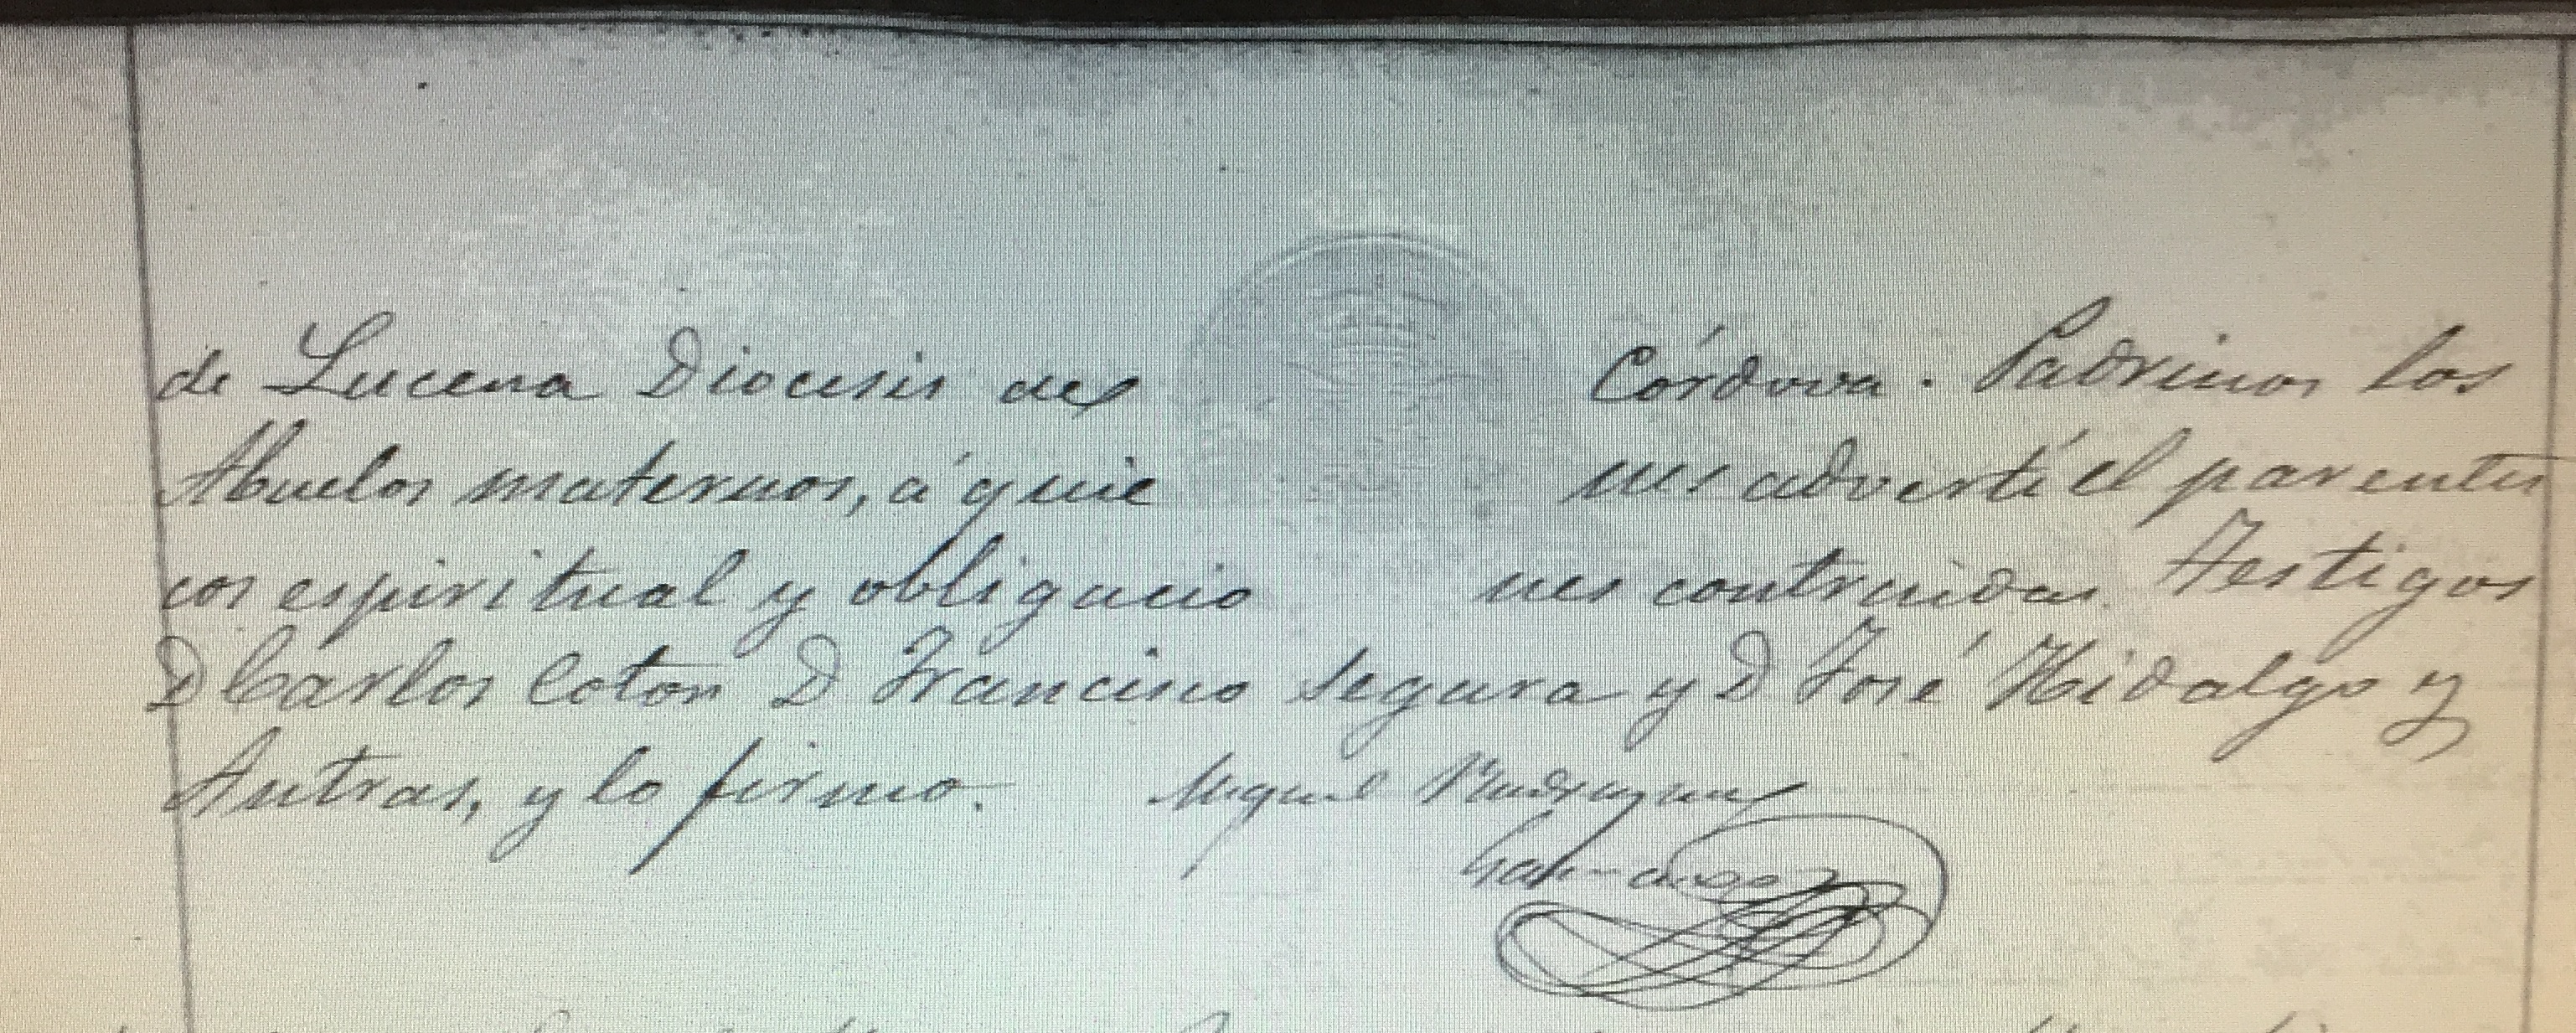 de Lucena Diocesis de Córdova. Padrinos los
Abuelos maternos, á quie nes advertí el parentes
cos espiritual y obligacio nes contraidas. Testigos
D Carlos Coton D Francisco Segura y D José Hidalgo y
Autras, y lo firmo. Miguel